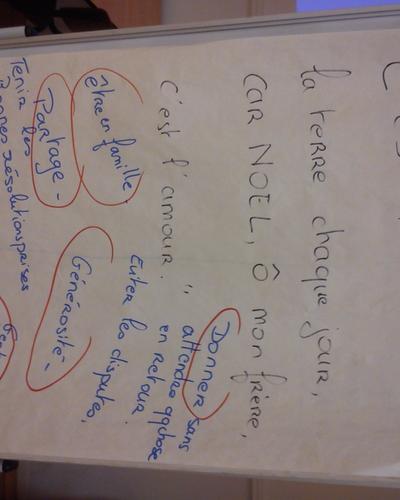 la terre chaque jour,
CAR NOEL, Ô mon frère,
c'est l'amour."
Donner sans
attendre qqchose
en retour.
être en famille
Eviter les disputes,
Partage -
Générosité -
Tenir les
bonnes résolutions prises